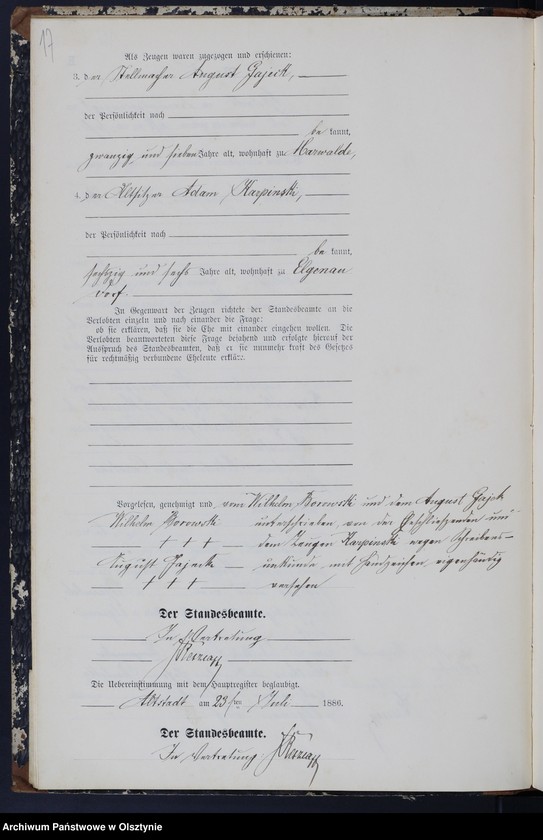 17
Als Zeugen waren zugezogen und erschienen:
3. der Stellmacher August Gajeck,
der Persönlichkeit nach
be kannt,
zwanzig und sieben Jahre alt, wohnhaft zu Marwalde,
4. der Altsitzer Adam Karpinski,
der Persönlichkeit nach
be kannt,
sechszig und sechs Jahre alt, wohnhaft zu Elgenau
dorf.
In Gegenwart der Zeugen richtete der Standesbeamte an die
Verlobten einzeln und nach einander die Frage:
ob sie erklären, daß sie die Ehe mit einander eingehen wollen. Die
Verlobten beantworteten diese Frage bejahend und erfolgte hierauf der
Ausspruch des Standesbeamten, daß er sie nunmehr kraft des Gesetzes
für rechtmäßig verbundene Eheleute erkläre.
Vorgelesen, genehmigt und vom Wilhelm Borowski und dem August Gajek
Wilhelm Borowski unterschrieben, von der Eheschließenden und
+ + + dem Zeugen Karpinski wegen Schreibens-
August Gajeck unkunde mit Handzeichen eigenhändig
+ + + versehen
Der Standesbeamte.
In Vertretung
Die Uebereinstimmung mit dem Hauptregister beglaubigt.
Altstadt am 23ten Juli 1886.
Der Standesbeamte.
In Vertretung.
Archiwum Państwowe w Olsztynie